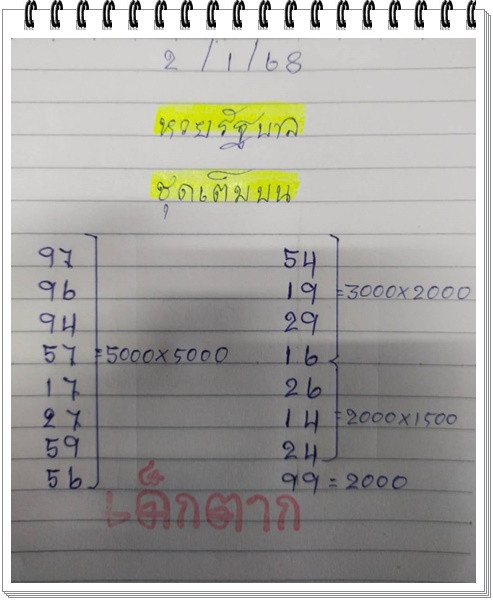 2/1/68
หวยรัฐบาล
ชุดเต็มบน
97
96
94
57 =5000×5000
17
27
59
56
54
19 =3000×2000
29
16
26
14 =2000×1500
24
99 = 2000
เด็กตาก